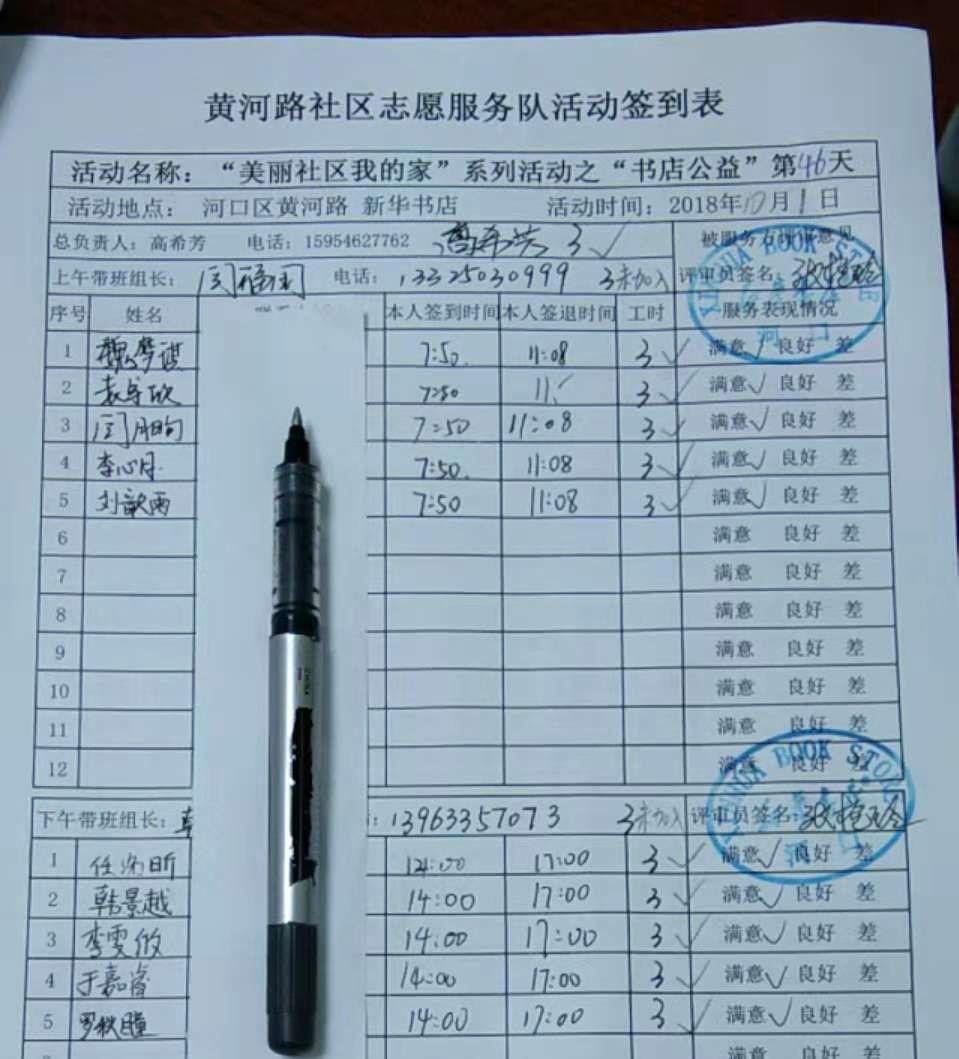 黄河路社区志愿服务队活动签到表
活动名称：“美丽社区我的家”系列活动之“书店公益”第46天
活动地点： 河口区黄河路 新华书店 活动时间：2018年10月1日
总负责人：高希芳 电话：15954627762 高希芳 3✓ 被服务方评审意见
上午带班组长： 电话：13325030999 3未加入 评审员签名：
序号 姓名 本人签到时间 本人签退时间 工时 服务表现情况
1 魏梦琪 7:50 11:08 3✓ 满意✓ 良好 差
2 7:50 11 3✓ 满意✓ 良好 差
3 7:50 11:08 3✓ 满意✓ 良好 差
4 李心月 7:50 11:08 3✓ 满意✓ 良好 差
5 刘歆雨 7:50 11:08 3✓ 满意✓ 良好 差
6 满意 良好 差
7 满意 良好 差
8 满意 良好 差
9 满意 良好 差
10 满意 良好 差
11 满意 良好 差
12 满意 良好 差
下午带班组长： 13963357073 3未加入 评审员签名：
1 14:00 17:00 3✓ 满意✓ 良好 差
2 韩景越 14:00 17:00 3✓ 满意✓ 良好 差
3 李雯 14:00 17:00 3✓ 满意✓ 良好 差
4 于嘉睿 14:00 17:00 3✓ 满意✓ 良好 差
5 罗秋瞳 14:00 17:00 3✓ 满意✓ 良好 差
满意 良好 差
XINHUA BOOK STORE
河口